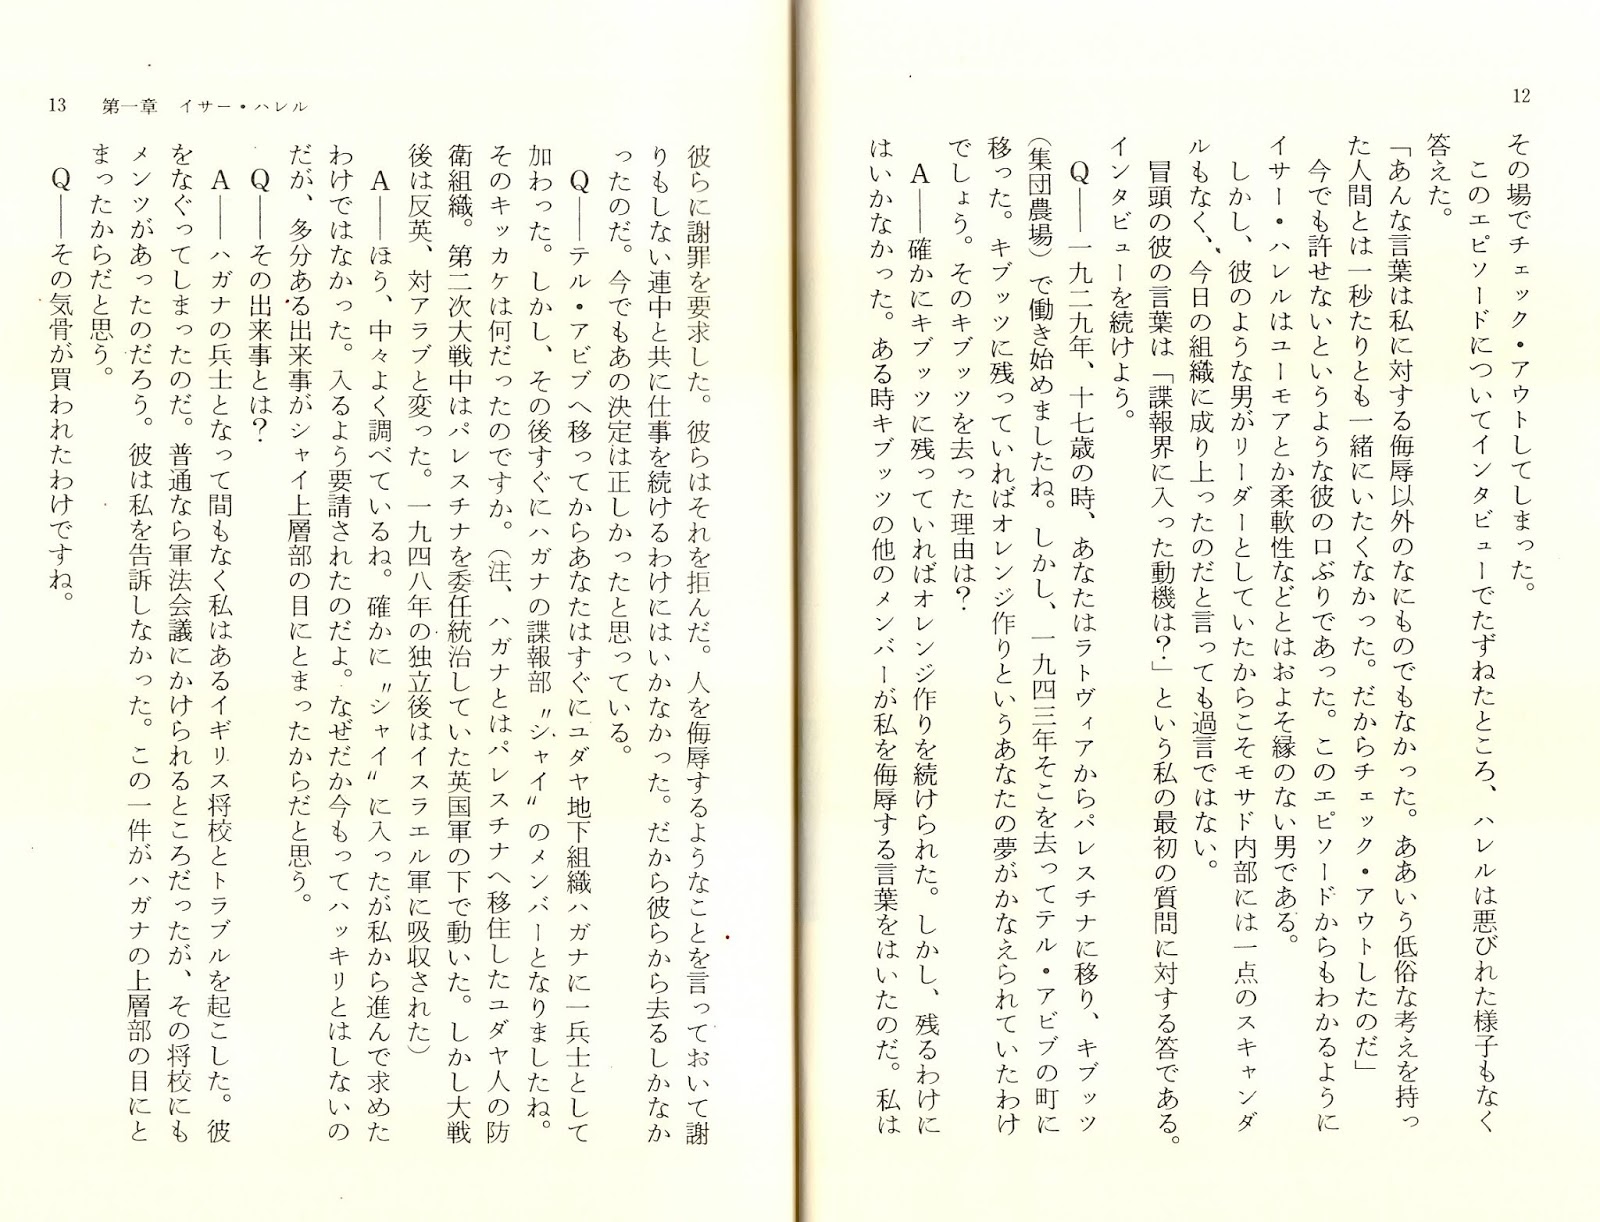 12
その場でチェック・アウトしてしまった。
このエピソードについてインタビューでたずねたところ、ハレルは悪びれた様子もなく
答えた。
「あんな言葉は私に対する侮辱以外のなにものでもなかった。ああいう低俗な考えを持っ
た人間とは一秒たりとも一緒にいたくなかった。だからチェック・アウトしたのだ」
今でも許せないというような彼の口ぶりであった。このエピソードからもわかるように
イサー・ハレルはユーモアとか柔軟性などとはおよそ縁のない男である。
しかし、彼のような男がリーダーとしていたからこそモサド内部には一点のスキャンダ
ルもなく、今日の組織に成り上ったのだと言っても過言ではない。
冒頭の彼の言葉は「諜報界に入った動機は?」という私の最初の質問に対する答である。
インタビューを続けよう。
Q——一九二九年、十七歳の時、あなたはラトヴィアからパレスチナに移り、キブッツ
（集団農場）で働き始めましたね。しかし、一九四三年そこを去ってテル・アビブの町に
移った。キブッツに残っていればオレンジ作りというあなたの夢がかなえられていたわけ
でしょう。そのキブッツを去った理由は?
A——確かにキブッツに残っていればオレンジ作りを続けられた。しかし、残るわけに
はいかなかった。ある時キブッツの他のメンバーが私を侮辱する言葉をはいたのだ。私は
13 第一章 イサー・ハレル
彼らに謝罪を要求した。彼らはそれを拒んだ。人を侮辱するようなことを言っておいて謝
りもしない連中と共に仕事を続けるわけにはいかなかった。だから彼らから去るしかなか
ったのだ。今でもあの決定は正しかったと思っている。
Q——テル・アビブへ移ってからあなたはすぐにユダヤ地下組織ハガナに一兵士として
加わった。しかし、その後すぐにハガナの諜報部〝シャイ〟のメンバーとなりましたね。
そのキッカケは何だったのですか。（注、ハガナとはパレスチナへ移住したユダヤ人の防
衛組織。第二次大戦中はパレスチナを委任統治していた英国軍の下で動いた。しかし大戦
後は反英、対アラブと変った。一九四八年の独立後はイスラエル軍に吸収された）
A——ほう、中々よく調べているね。確かに〝シャイ〟に入ったが私から進んで求めた
わけではなかった。入るよう要請されたのだよ。なぜだか今もってハッキリとはしないの
だが、多分ある出来事がシャイ上層部の目にとまったからだと思う。
Q——その出来事とは?
A——ハガナの兵士となって間もなく私はあるイギリス将校とトラブルを起こした。彼
をなぐってしまったのだ。普通なら軍法会議にかけられるところだったが、その将校にも
メンツがあったのだろう。彼は私を告訴しなかった。この一件がハガナの上層部の目にと
まったからだと思う。
Q——その気骨が買われたわけですね。